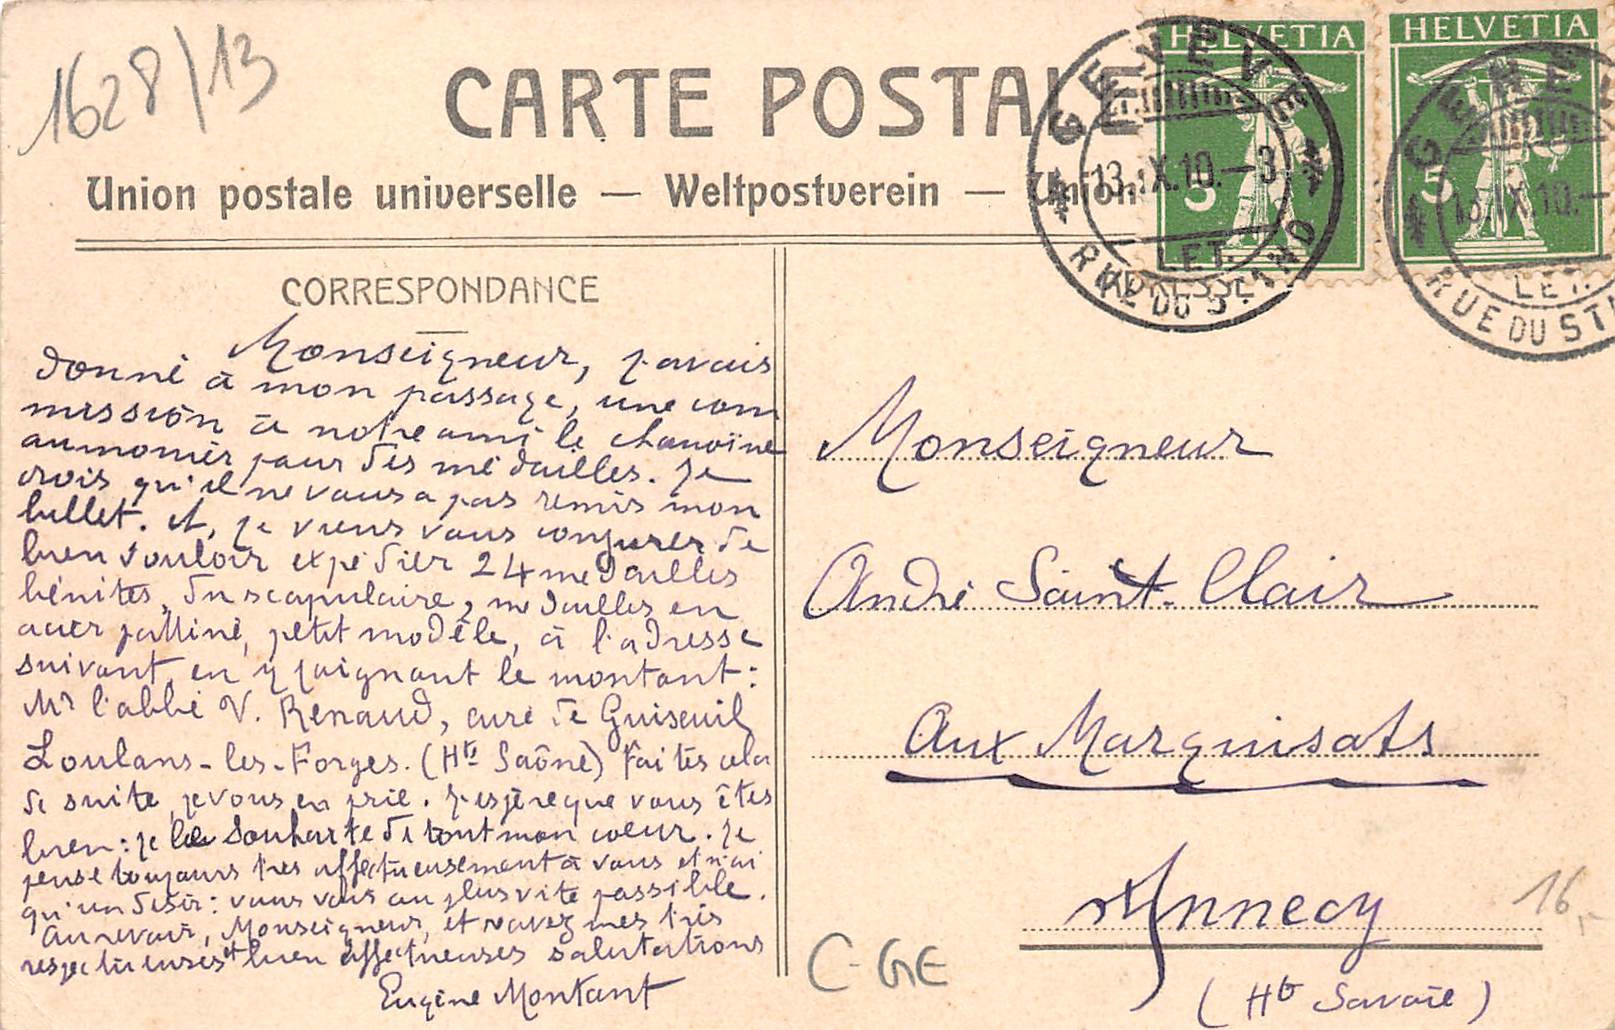 1628/13
CARTE POSTALE
Union postale universelle — Weltpostverein — Union
HELVETIA
5
HELVETIA
5
GENÈVE
13.IX.10.–3
LET.
RUE DU STAND
GENÈVE
13.IX.10.–
LET.
RUE DU ST
CORRESPONDANCE
Monseigneur, j'avais
donné à mon passage, une com
mission à notre ami le chanoine
aumonier pour des médailles. Je
crois qu'il ne vous a pas remis mon
billet. Et, je viens vous conjurer de
bien vouloir expédier 24 médailles
bénites, du scapulaire, médailles en
acier patiné, petit modèle, à l'adresse
suivant, en y joignant le montant:
Mr l'abbé V. Renaud, curé de Guiseuil
Loulans-les-Forges. (Hte Saône) Faites cela
de suite, je vous en prie. J'espère que vous êtes
bien: je le souhaite de tout mon coeur. Je
pense toujours très affectueusement à vous et n'ai
qu'un désir: vous voir au plus vite possible.
Au revoir, Monseigneur, et mes très
respectueuses et bien affectueuses salutations
Eugène Montant
Monseigneur
André Saint-Clair
Aux Marquisats
Annecy
(Hte Savoie)
C-GE
16,-